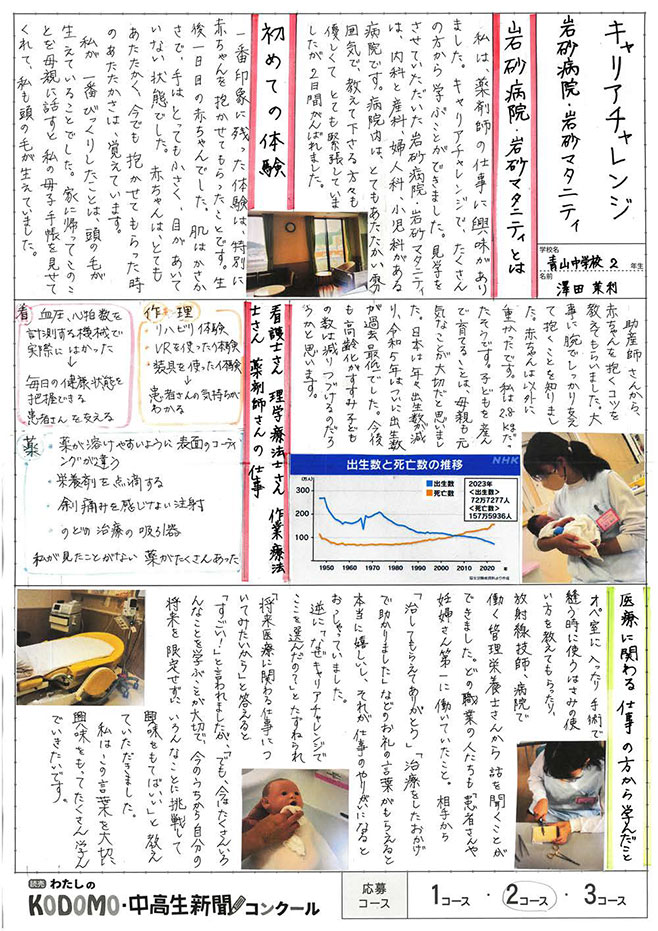 キャリアチャレンジ
岩砂病院・岩砂マタニティ
学校名
青山中学校 2年生
名前
澤田 茉利
岩砂病院・岩砂マタニティとは
私は、薬剤師の仕事に興味があり
ました。キャリアチャレンジで、たくさん
の方から学ぶことができました。見学を
させていただいた岩砂病院・岩砂マタニティ
は、内科と産科、婦人科、小児科がある
病院です。病院内は、とてもあたたかい雰
囲気で、教えて下さる方々も
優しくて、とても緊張していま
したが2日間がんばれました。
初めての体験
一番印象に残った体験は、特別に
赤ちゃんを抱かせてもらったことです。生
後一日目の赤ちゃんでした。肌はかさか
さで、手はとっても小さく、目があいて
いない状態でした。赤ちゃんは、とても
あたたかく、今でも抱かせてもらった時
のあたたかさは、覚えています。
私が一番びっくりしたことは、頭の毛が
生えていることでした。家に帰ってこのこ
とを母親に話すと私の母子手帳を見せて
くれて、私も頭の毛が生えていました。
助産師さんから、
赤ちゃんを抱くコツを
教えてもらいました。大
事に腕でしっかり支え
て抱くことを知りまし
た。赤ちゃんは以外に
重かったです。私は2.8kgだっ
たそうです。子どもを産ん
で育てることは、母親も元
気なことが大切だと思いまし
た。日本は年々出生数が減
り、令和5年はついに出生数
が過去最低でした。今後
も高齢化がすすみ子ども
の数は減りつづけるのだろ
うかと思います。
NHK
出生数と死亡数の推移
(万人)
出生数
死亡数
2023年
<出生数>
72万7277人
<死亡数>
157万5936人
300
200
100
1950 1960 1970 1980 1990 2000 2010 2020 年
看護士さん 理学療法士さん 作業療法
士さん 薬剤師さんの仕事
作・理
・リハビリ体験
・VRを使った体験
・装具を使った体験
↓
患者さんの気持ちが
わかる
看
血圧、心拍数を
計測する機械で
実際にはかった
↓
毎日の健康状態を
把握できる
患者さんを支える
薬
・薬が溶けやすいように表面のコーテ
ィングが違う
・栄養剤を点滴する
・余り痛みを感じない注射
・のどの治療の吸引器
私が見たことがない薬がたくさんあった
医療に関わる仕事の方から学んだこと
オペ室に入ったり、手術で
縫う時に使うはさみの使
い方を教えてもらったり、
放射線技師、病院で
働く管理栄養士さんから話を聞くことが
できました。どの職業の人たちも「患者さんや
妊婦さん第一に働いていたこと。相手から
「治してもらえてありがとう」「治療をしたおかげ
で助かりました」などのお礼の言葉がもらえると
本当に嬉しいし、それが仕事のやりがいになると
おっしゃっていました。
逆に「なぜキャリアチャレンジで
ここを選んだの?」とたずねられ
「将来医療に関わる仕事につ
いてみたいから」と答えると
「すごい!」と言われましたが、「でも、今はたくさんいろ
んなことを学ぶことが大切で、今のうちから自分の
将来を限定せずにいろんなことに挑戦して
興味をもてばいい」と教え
ていただきました。
私はこの言葉を大切に、
興味をもってたくさん学ん
でいきたいです。
読売 わたしの
KODOMO・中高生新聞コンクール
応募
コース
1コース・2コース・3コース